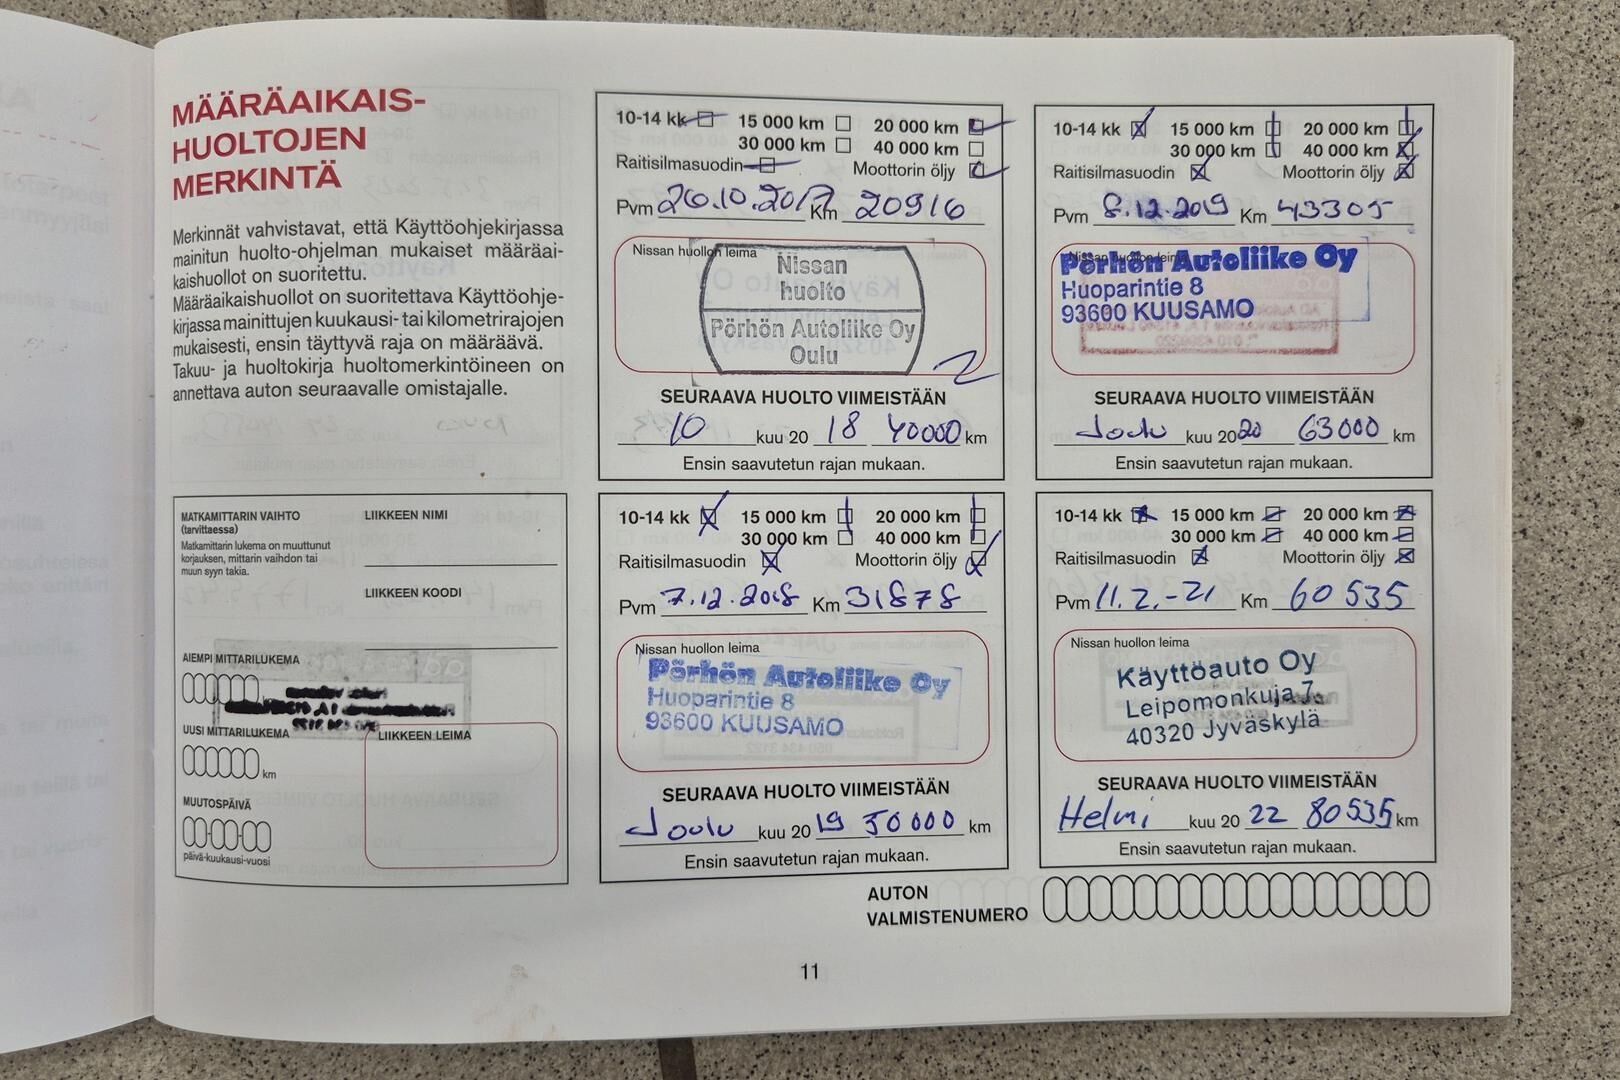 MÄÄRÄAIKAIS-
HUOLTOJEN
MERKINTÄ
Merkinnät vahvistavat, että Käyttöohjekirjassa
mainitun huolto-ohjelman mukaiset määräai-
kaishuollot on suoritettu.
Määräaikaishuollot on suoritettava Käyttöohje-
kirjassa mainittujen kuukausi- tai kilometrirajojen
mukaisesti, ensin täyttyvä raja on määräävä.
Takuu- ja huoltokirja huoltomerkintöineen on
annettava auton seuraavalle omistajalle.
MATKAMITTARIN VAIHTO
(tarvittaessa)
Matkamittarin lukema on muuttunut
korjauksen, mittarin vaihdon tai
muun syyn takia.
LIIKKEEN NIMI
LIIKKEEN KOODI
AIEMPI MITTARILUKEMA
km
UUSI MITTARILUKEMA
km
LIIKKEEN LEIMA
MUUTOSPÄIVÄ
päivä-kuukausi-vuosi
10-14 kk 15 000 km 20 000 km
30 000 km 40 000 km
Raitisilmasuodin Moottorin öljy
Pvm 26.10.2017 Km 20916
Nissan huollon leima
Nissan
huolto
Pörhön Autoliike Oy
Oulu
SEURAAVA HUOLTO VIIMEISTÄÄN
10 kuu 20 18 40000 km
Ensin saavutetun rajan mukaan.
10-14 kk 15 000 km 20 000 km
30 000 km 40 000 km
Raitisilmasuodin Moottorin öljy
Pvm 8.12.2019 Km 43305
Nissan huollon leima
Pörhön Autoliike Oy
Huoparintie 8
93600 KUUSAMO
SEURAAVA HUOLTO VIIMEISTÄÄN
Joulu kuu 2020 63000 km
Ensin saavutetun rajan mukaan.
10-14 kk 15 000 km 20 000 km
30 000 km 40 000 km
Raitisilmasuodin Moottorin öljy
Pvm 7.12.2018 Km 31878
Nissan huollon leima
Pörhön Autoliike Oy
Huoparintie 8
93600 KUUSAMO
SEURAAVA HUOLTO VIIMEISTÄÄN
Joulu kuu 20 19 50000 km
Ensin saavutetun rajan mukaan.
10-14 kk 15 000 km 20 000 km
30 000 km 40 000 km
Raitisilmasuodin Moottorin öljy
Pvm 11.2.-21 Km 60 535
Nissan huollon leima
Käyttöauto Oy
Leipomonkuja 7
40320 Jyväskylä
SEURAAVA HUOLTO VIIMEISTÄÄN
Helmi kuu 20 22 80535 km
Ensin saavutetun rajan mukaan.
AUTON
VALMISTENUMERO
11